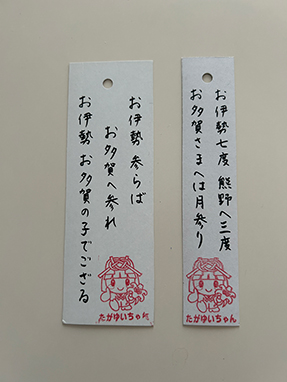 お伊勢七度 熊野へ三度
お多賀さまへは月参り
たがゆいちゃん
お伊勢参らば
お多賀へ参れ
お伊勢 お多賀の子でござる
たがゆいちゃん